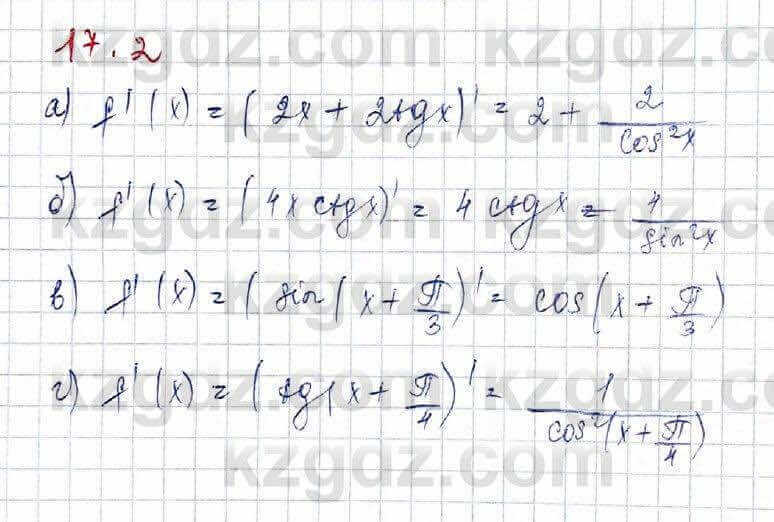 17.2
а) f'(x) = (2x + 2tgx)' = 2 + 2/cos²x
б) f'(x) = (4x ctgx)' = 4 ctgx - 4/sin²x
в) f'(x) = (sin(x + π/3)' = cos(x + π/3)
г) f'(x) = (tg(x + π/4)' = 1/cos²(x + π/4)
kzgdz.com
kzgdz.com
kzgdz.com
kzgdz.com
kzgdz.com